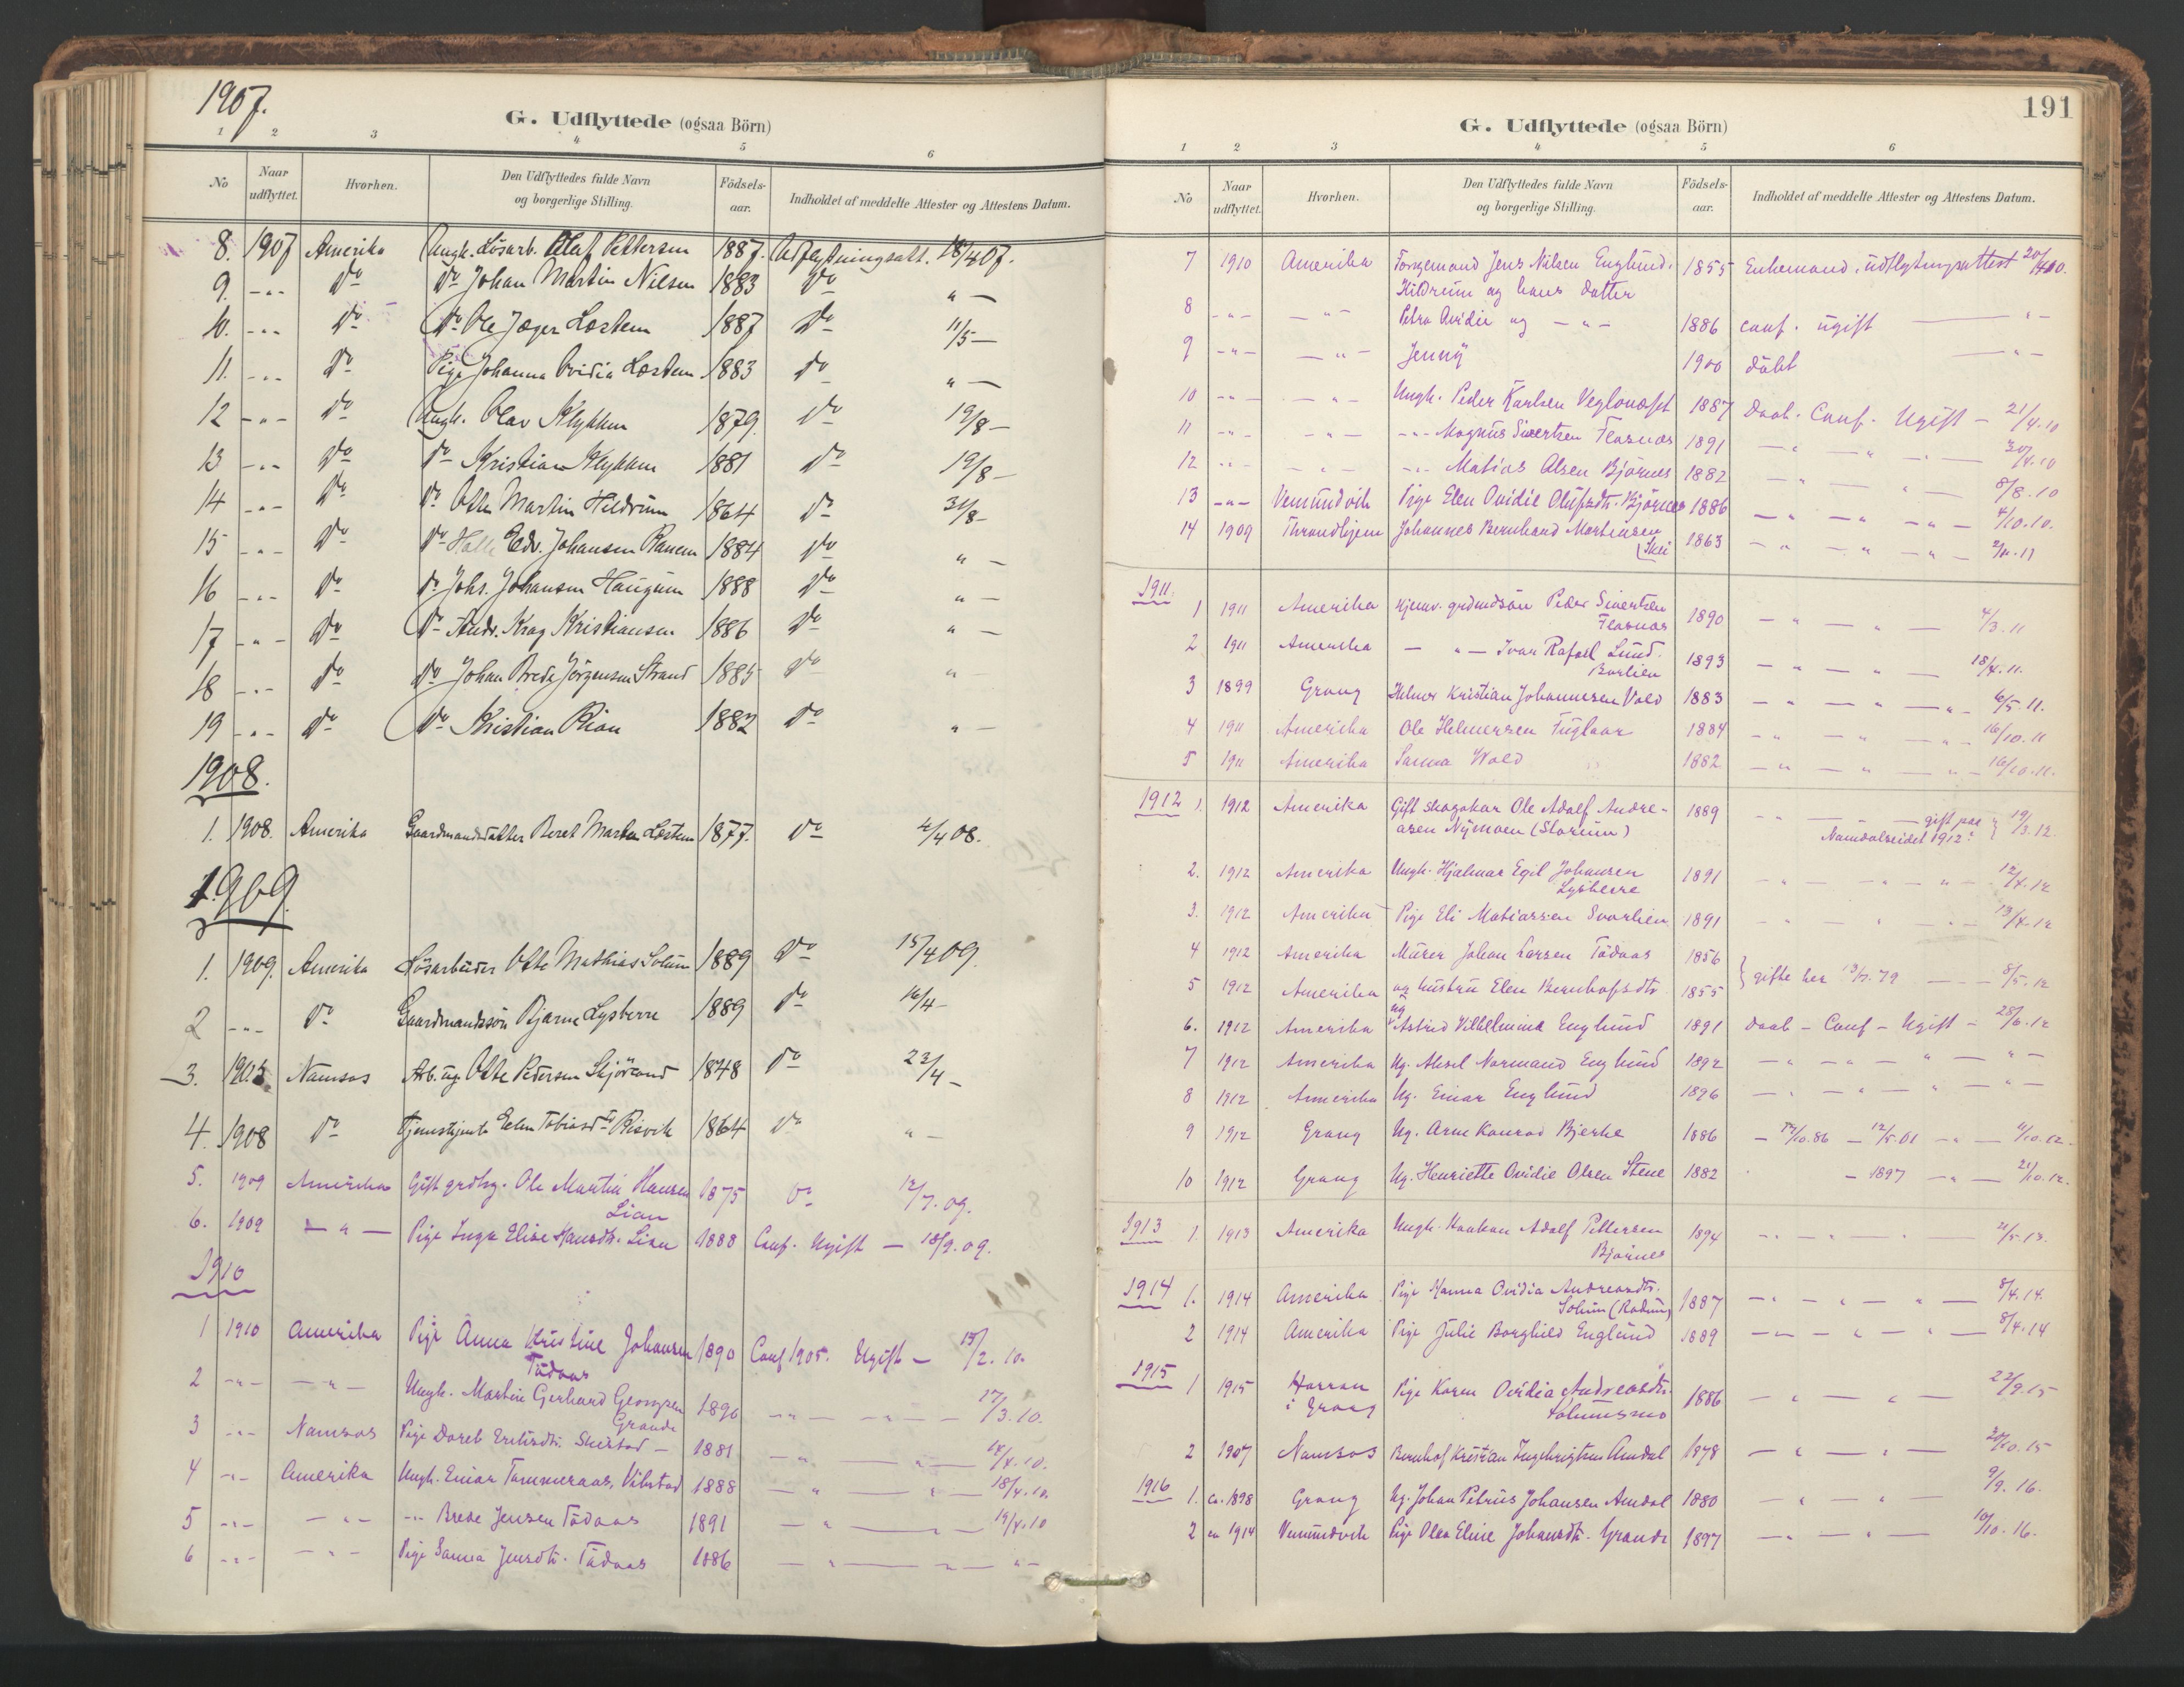 1907.
G. Udflyttede (ogsaa Börn)
1 2 3 4 5 6
No Naar udflyttet. Hvorhen. Den Udflyttedes fulde Navn og borgerlige Stilling. Födsels-aar. Indholdet af meddelte Attester og Attestens Datum.
8. 1907 Amerika Ungk. Lösarb. Olaf Pettersen 1887. Udflytningsatt. 18/4 07.
9. -"- do do Johan Martin Nilsen 1883 do " -
10. -"- do do Ole Jæger Lostem 1887 do 11/5 -
11. -"- do Pige Johanna Ovidia Lostem 1883 do " -
12 -"- do Ungk. Olav Klykken 1879. do 19/8 -
13 -"- do do Kristian Klykken 1881 do 19/8 -
14 -"- do do Otto Martin Hildrum 1864 do 31/8 -
15 -"- do do Edv. Johansen Ranem 1884 do " -
16 -"- do do Johs. Johansen Haugum 1888 do " -
17 -"- do do Andr. Krag Kristiansen 1886 do " -
18 -"- do do Johan Brede Jörgensen Strand 1885 do "
19 -"- do do Kristian Rian 1882 do " -
1908.
1. 1908. Amerika Gaardmandsdatter Beret Lostem 1877. do 4/4 08.
1909.
1. 1909. Amerika Lösarbeider Otto Mathias Solum 1889 do 15/4 09.
2 -"- do Gaardmandssön Bjarne Lysberre 1889 do 16/4 -
3. Namsos Arb. ug. Otto Pedersen 1848 do 23/4 -
4. 1908 do Tjenestjente Elen Tobiasdtr Risvik 1864 do " -
5. 1909 Amerika Gift grdbr. Ole Martin Hansen Lian 1875 do 12/7. 09.
6. 1909 - " - Pige Inga Elise Hansdtr. Lian 1888 Conf. Ugift - 18/9. 09.
1910
1 1910 Amerika Pige Anna Kristine Johansen Tödaas 1890 Conf 1905. Ugift - 15/2. 10.
2 -"- -"- Ungk. Martin Gerhard Georgsen Grande 1890 -"- -"- 17/3. 10.
3 -"- Namsos Pige Doret 1881 - " - " - 14/4. 10.
4 -"- Amerika Ungk. Einar Tommeraas, Vibstad 1888 - " - " - 18/4. 10.
5 -"- -"- -"- Brede Jensen Tödaas 1891 - " - " - 19/4. 10
6 -"- -"- Pige Sanna Jensdtr. Tödaas 1886 - " - " - " -
191
G. Udflyttede (ogsaa Börn)
1 2 3 4 5 6
No Naar udflyttet. Hvorhen. Den Udflyttedes fulde Navn og borgerlige Stilling. Födsels-aar. Indholdet af meddelte Attester og Attestens Datum.
7 1910 Amerika Jens Nilsen Englund. 1855 Enkemand, udflytningsattest 20/4 10.
Hildrum og hans datter
8 -"- -"- Petra Ovidie og -"- 1886 conf. ugift - " -
9 -"- -"- Jenny 1900 döbt - " -
10 -"- -"- Ungk. Peder Karlsen 1887 Daab. Conf. Ugift - 21/4. 10
11 -"- -"- -"- Magnus Sivertsen Flasnæs 1891 - " - " - 30/4. 10
12 -"- -"- -"- Matias Olsen Björnes 1882 - " - " - 8/8. 10
13 -"- Vemundvik Pige Elen Ovidie Olufsdtr. Björnes 1886 - " - " - 4/10. 10.
14 1909 Throndhjem Johannes Bernhard Martinsen (Skei 1863 - " - " - " - 2/11. 11
1911.
1 1911 Amerika Hjemv. grdmdsön Peder Sivertsen Flasnæs 1890 - " - " - 4/3. 11
2 1911 Amerika - " - Ivar Rafael Lund. 1893 - " - " - 18/4. 11.
3 1899 Grong Helmer Kristian Johannesen Vold 1883 - " - " - " - 6/5. 11.
4 1911 Amerika Ole Helmersen Fuglaar 1884 - " - " - " - 16/10. 11
5 1911 Amerika Sanna Wold 1882 - " - " - " - 16/10. 11.
1912 1. 1912 Amerika Gift skogskar Ole Adolf Andre- 1889 - " - gift paa } 19/3. 12.
asen Nymoen (Storum) Namdalseidet 1912.
2. 1912 Amerika Ungk. Hjalmar Egil Johansen Lysberre 1891 - " - " - 12/4. 12
3. 1912 Amerika Pige Eli Matiassen 1891 - " - " - 13/4. 12
4 1912 Amerika Murer Johan Larsen Tödaas 1856
5 1912 Amerika og hustru Elen Bernhofsdtr 1855 } gifte her 13/7. 79 - 8/5. 12
6. 1912 Amerika ug Astrid Vilhelmine Englund 1891 Daab - Conf - Ugift - 28/6. 12
7 1912 Amerika Ug. Aksel Normand Englund 1892 - " - " - " - " -
8 1912 Amerika Ug. Einar Englund 1896 - " - " - " - " -
9 1912 Grong Ug. Arne Konrad Bjerke 1886 - 17/10. 86 - 12/5. 01 - " - 11/10. 12.
10 1912 Grong Ug. Henriette Ovidie Olsen Stene 1882 - 1897 - " - 21/10. 12.
1913 1. 1913 Amerika Ungk. Haakon Adolf Pettersen Björnes 1894 - " - " - 21/5. 13.
1914 1. 1914 Amerika Pige Hanna Ovidia Andreasdtr. Solum (Rodum) 1887 - " - " - " - 8/4. 14.
2 1914 Amerika Pige Julie Borghild Englund 1889 - " - " - " - 8/4. 14
1915 1 1915 Harran i Grong Pige Karen Ovidia Andreasdtr. Solumsmo 1886 - " - " - 22/9. 15
2 1907 Namsos Bernhof Kristian Ingebrigtsen Amdal 1878 - " - " - 20/10. 15
1916 1. ca. 1898 Grong Ug. Johan Petrus Johansen Amdal 1880 - " - " - 9/9. 16.
2 ca 1914 Vemundvik Pige Olea Eline Johansdtr. Grande 1897 - " - " - 10/10. 16.